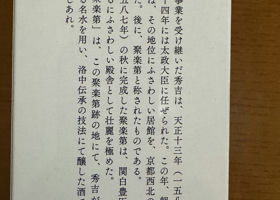 事業を受け継いだ秀吉は、天正十三年（一五八
十四年には太政大臣に任ぜられた。この年、
は、その地位にふさわしい居館を、京都西北の
た。後に、聚楽第と称されたものである。
五八七年）の秋に完成した聚楽第は、関白豊臣
にふさわしい殿舎として壮麗を極めた。
聚楽第」は、この聚楽第跡の地にて、秀吉が
る名水を用い、洛中伝承の技法にて醸した酒で
しあれ。